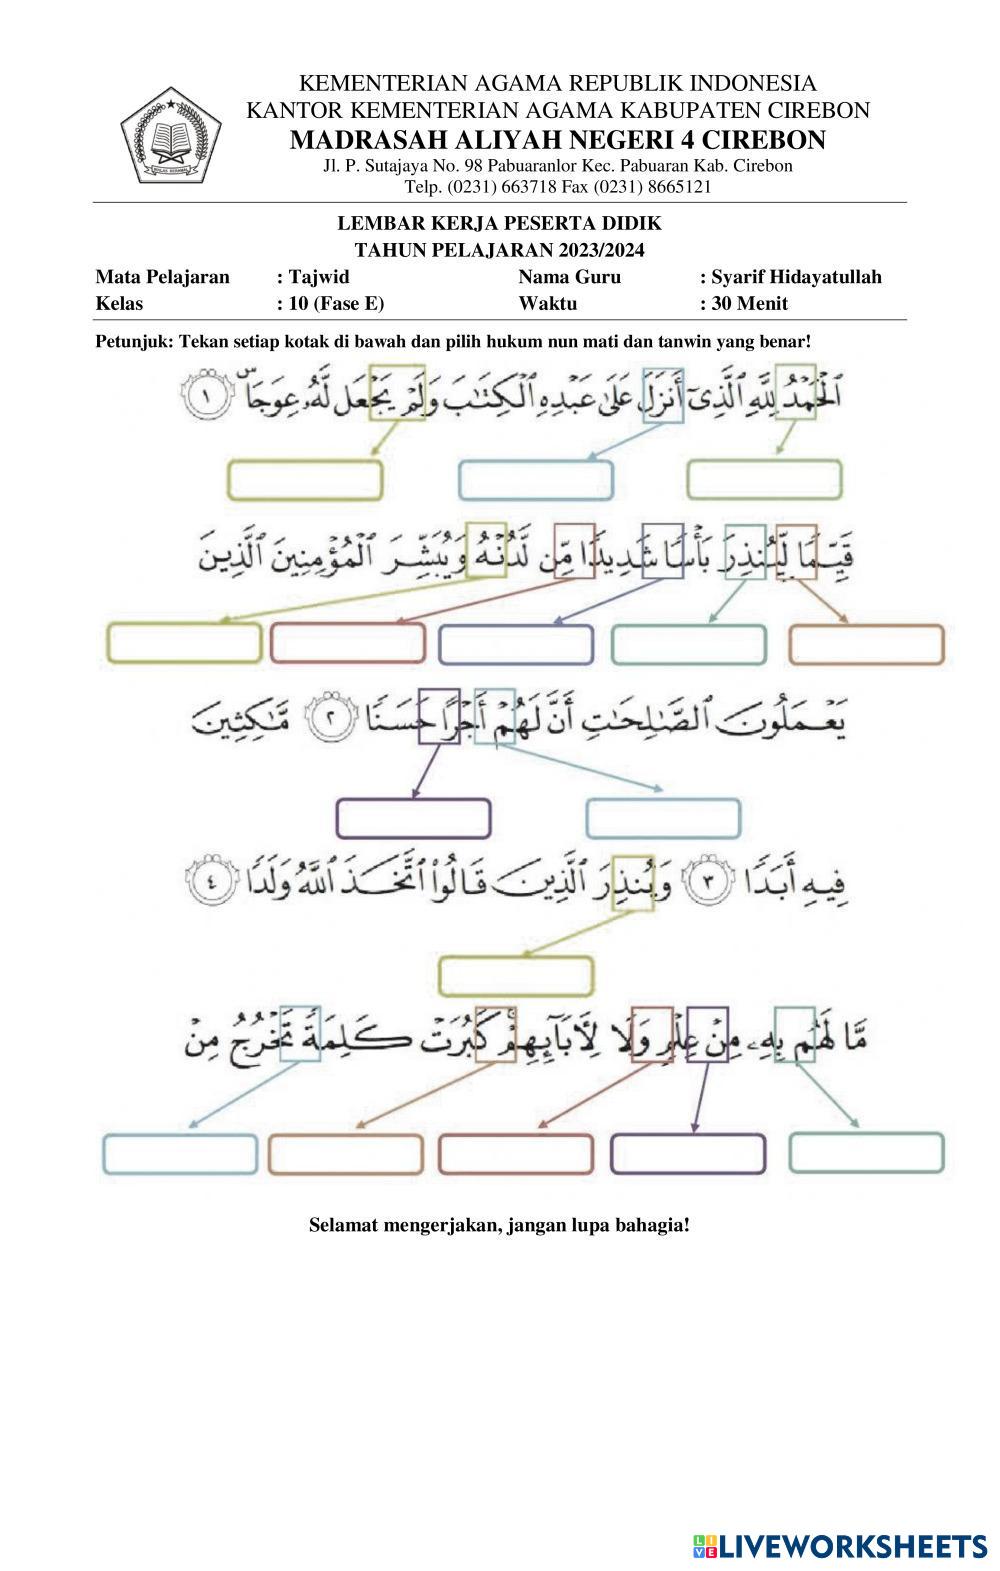 KEMENTERIAN AGAMA REPUBLIK INDONESIA
KANTOR KEMENTERIAN AGAMA KABUPATEN CIREBON
MADRASAH ALIYAH NEGERI 4 CIREBON
Jl. P. Sutajaya No. 98 Pabuaranlor Kec. Pabuaran Kab. Cirebon
Telp. (0231) 663718 Fax (0231) 8665121
LEMBAR KERJA PESERTA DIDIK
TAHUN PELAJARAN 2023/2024
Mata Pelajaran : Tajwid Nama Guru : Syarif Hidayatullah
Kelas : 10 (Fase E) Waktu : 30 Menit
Petunjuk: Tekan setiap kotak di bawah dan pilih hukum nun mati dan tanwin yang benar!
ٱلْحَمْدُ لِلَّهِ ٱلَّذِىٓ أَنزَلَ عَلَىٰ عَبْدِهِ ٱلْكِتَٰبَ وَلَمْ يَجْعَل لَّهُۥ عِوَجَاۜ ١
قَيِّمًا لِّيُنذِرَ بَأْسًا شَدِيدًا مِّن لَّدُنْهُ وَيُبَشِّرَ ٱلْمُؤْمِنِينَ ٱلَّذِينَ
يَعْمَلُونَ ٱلصَّٰلِحَٰتِ أَنَّ لَهُمْ أَجْرًا حَسَنًا ٢ مَّٰكِثِينَ
فِيهِ أَبَدًا ٣ وَيُنذِرَ ٱلَّذِينَ قَالُوا۟ ٱتَّخَذَ ٱللَّهُ وَلَدًا ٤
مَّا لَهُم بِهِۦ مِنْ عِلْمٍ وَلَا لِءَابَآئِهِمْ ۚ كَبُرَتْ كَلِمَةً تَخْرُجُ مِنْ
Selamat mengerjakan, jangan lupa bahagia!
LIVEWORKSHEETS